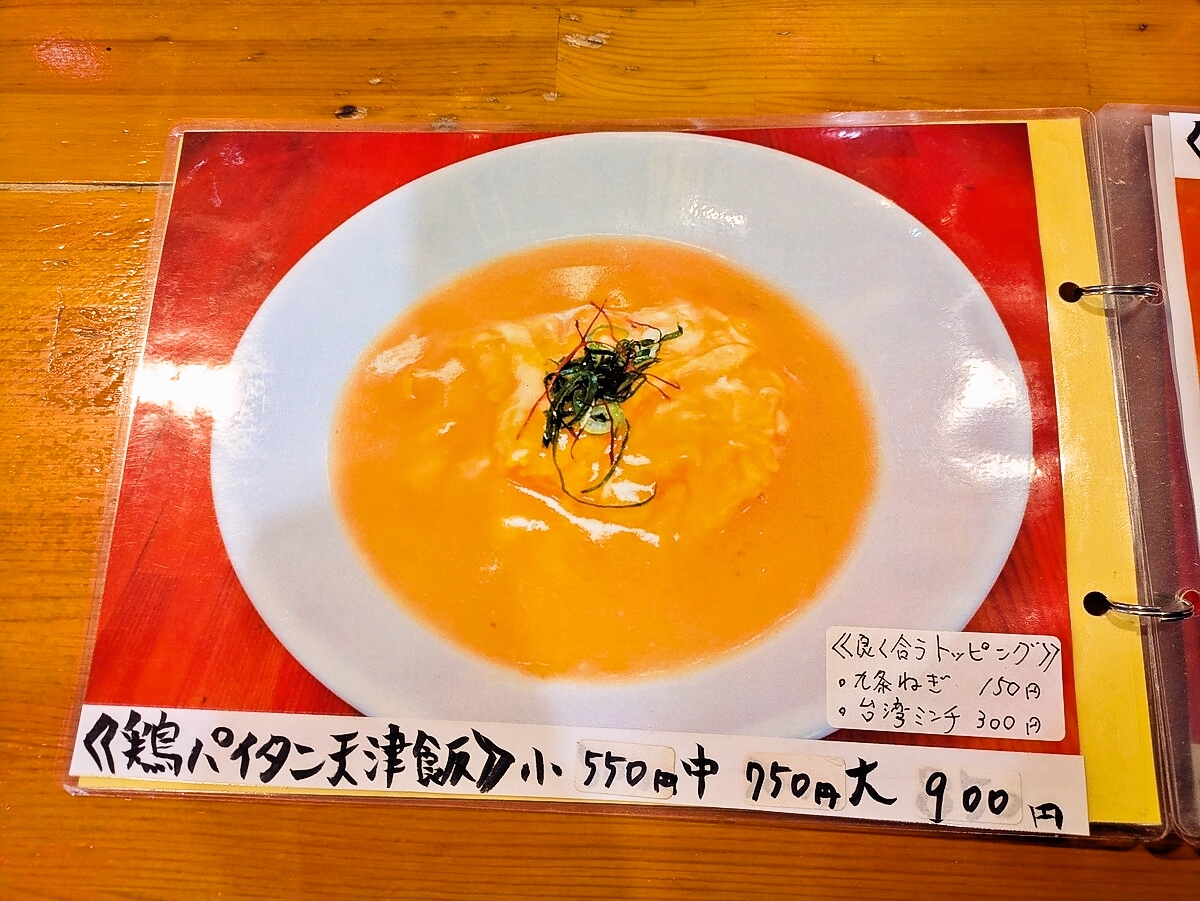 《良く合うトッピング》
・九条ねぎ 150円
・台湾ミンチ 300円
《鶏パイタン天津飯》小 550円 中 750円 大 900円